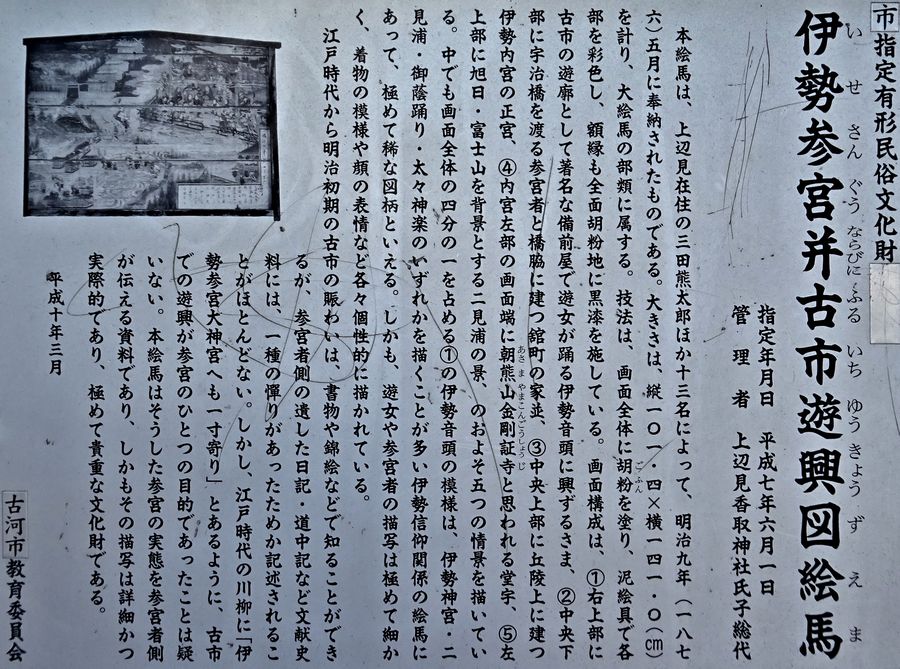 市指定有形民俗文化財
伊勢参宮并古市遊興図絵馬
いせさんぐうならびにふるいちゆうきょうずえま
指定年月日　平成七年六月一日
管理者　上辺見香取神社氏子総代
本絵馬は、上辺見在住の三田熊太郎ほか十三名によって、明治九年（一八七
六）五月に奉納されたものである。大きさは、縦一〇一・四×横一四一・〇（㎝）
を計り、大絵馬の部類に属する。技法は、画面全体に胡粉を塗り、泥絵具で各
ごふん
部を彩色し、額縁も全面胡粉地に黒漆を施している。画面構成は、①右上部に
古市の遊廓として著名な備前屋で遊女が踊る伊勢音頭に興ずるさま、②中央下
部に宇治橋を渡る参宮者と橋脇に建つ舘町の家並、③中央上部に丘陵上に建つ
伊勢内宮の正宮、④内宮左部の画面端に朝熊山金剛証寺と思われる堂宇、⑤左
あさまやまこんごうしょうじ
上部に旭日・富士山を背景とする二見浦の景、のおよそ五つの情景を描いてい
る。中でも画面全体の四分の一を占める①の伊勢音頭の模様は、伊勢神宮・二
見浦・御蔭踊り・太々神楽のいずれかを描くことが多い伊勢信仰関係の絵馬に
あって、極めて稀な図柄といえる。しかも、遊女や参宮者の描写は極めて細か
く、着物の模様や顔の表情など各々個性的に描かれている。
江戸時代から明治初期の古市の賑わいは、書物や錦絵などで知ることができ
るが、参宮者側の遺した日記・道中記など文献史
料には、一種の憚りがあったためか記述されるこ
とがほとんどない。しかし、江戸時代の川柳に「伊
勢参宮大神宮へも一寸寄り」とあるように、古市
での遊興が参宮のひとつの目的であったことは疑
いない。本絵馬はそうした参宮の実態を参宮者側
が伝える資料であり、しかもその描写は詳細かつ
実際的であり、極めて貴重な文化財である。
平成十年三月
古河市教育委員会